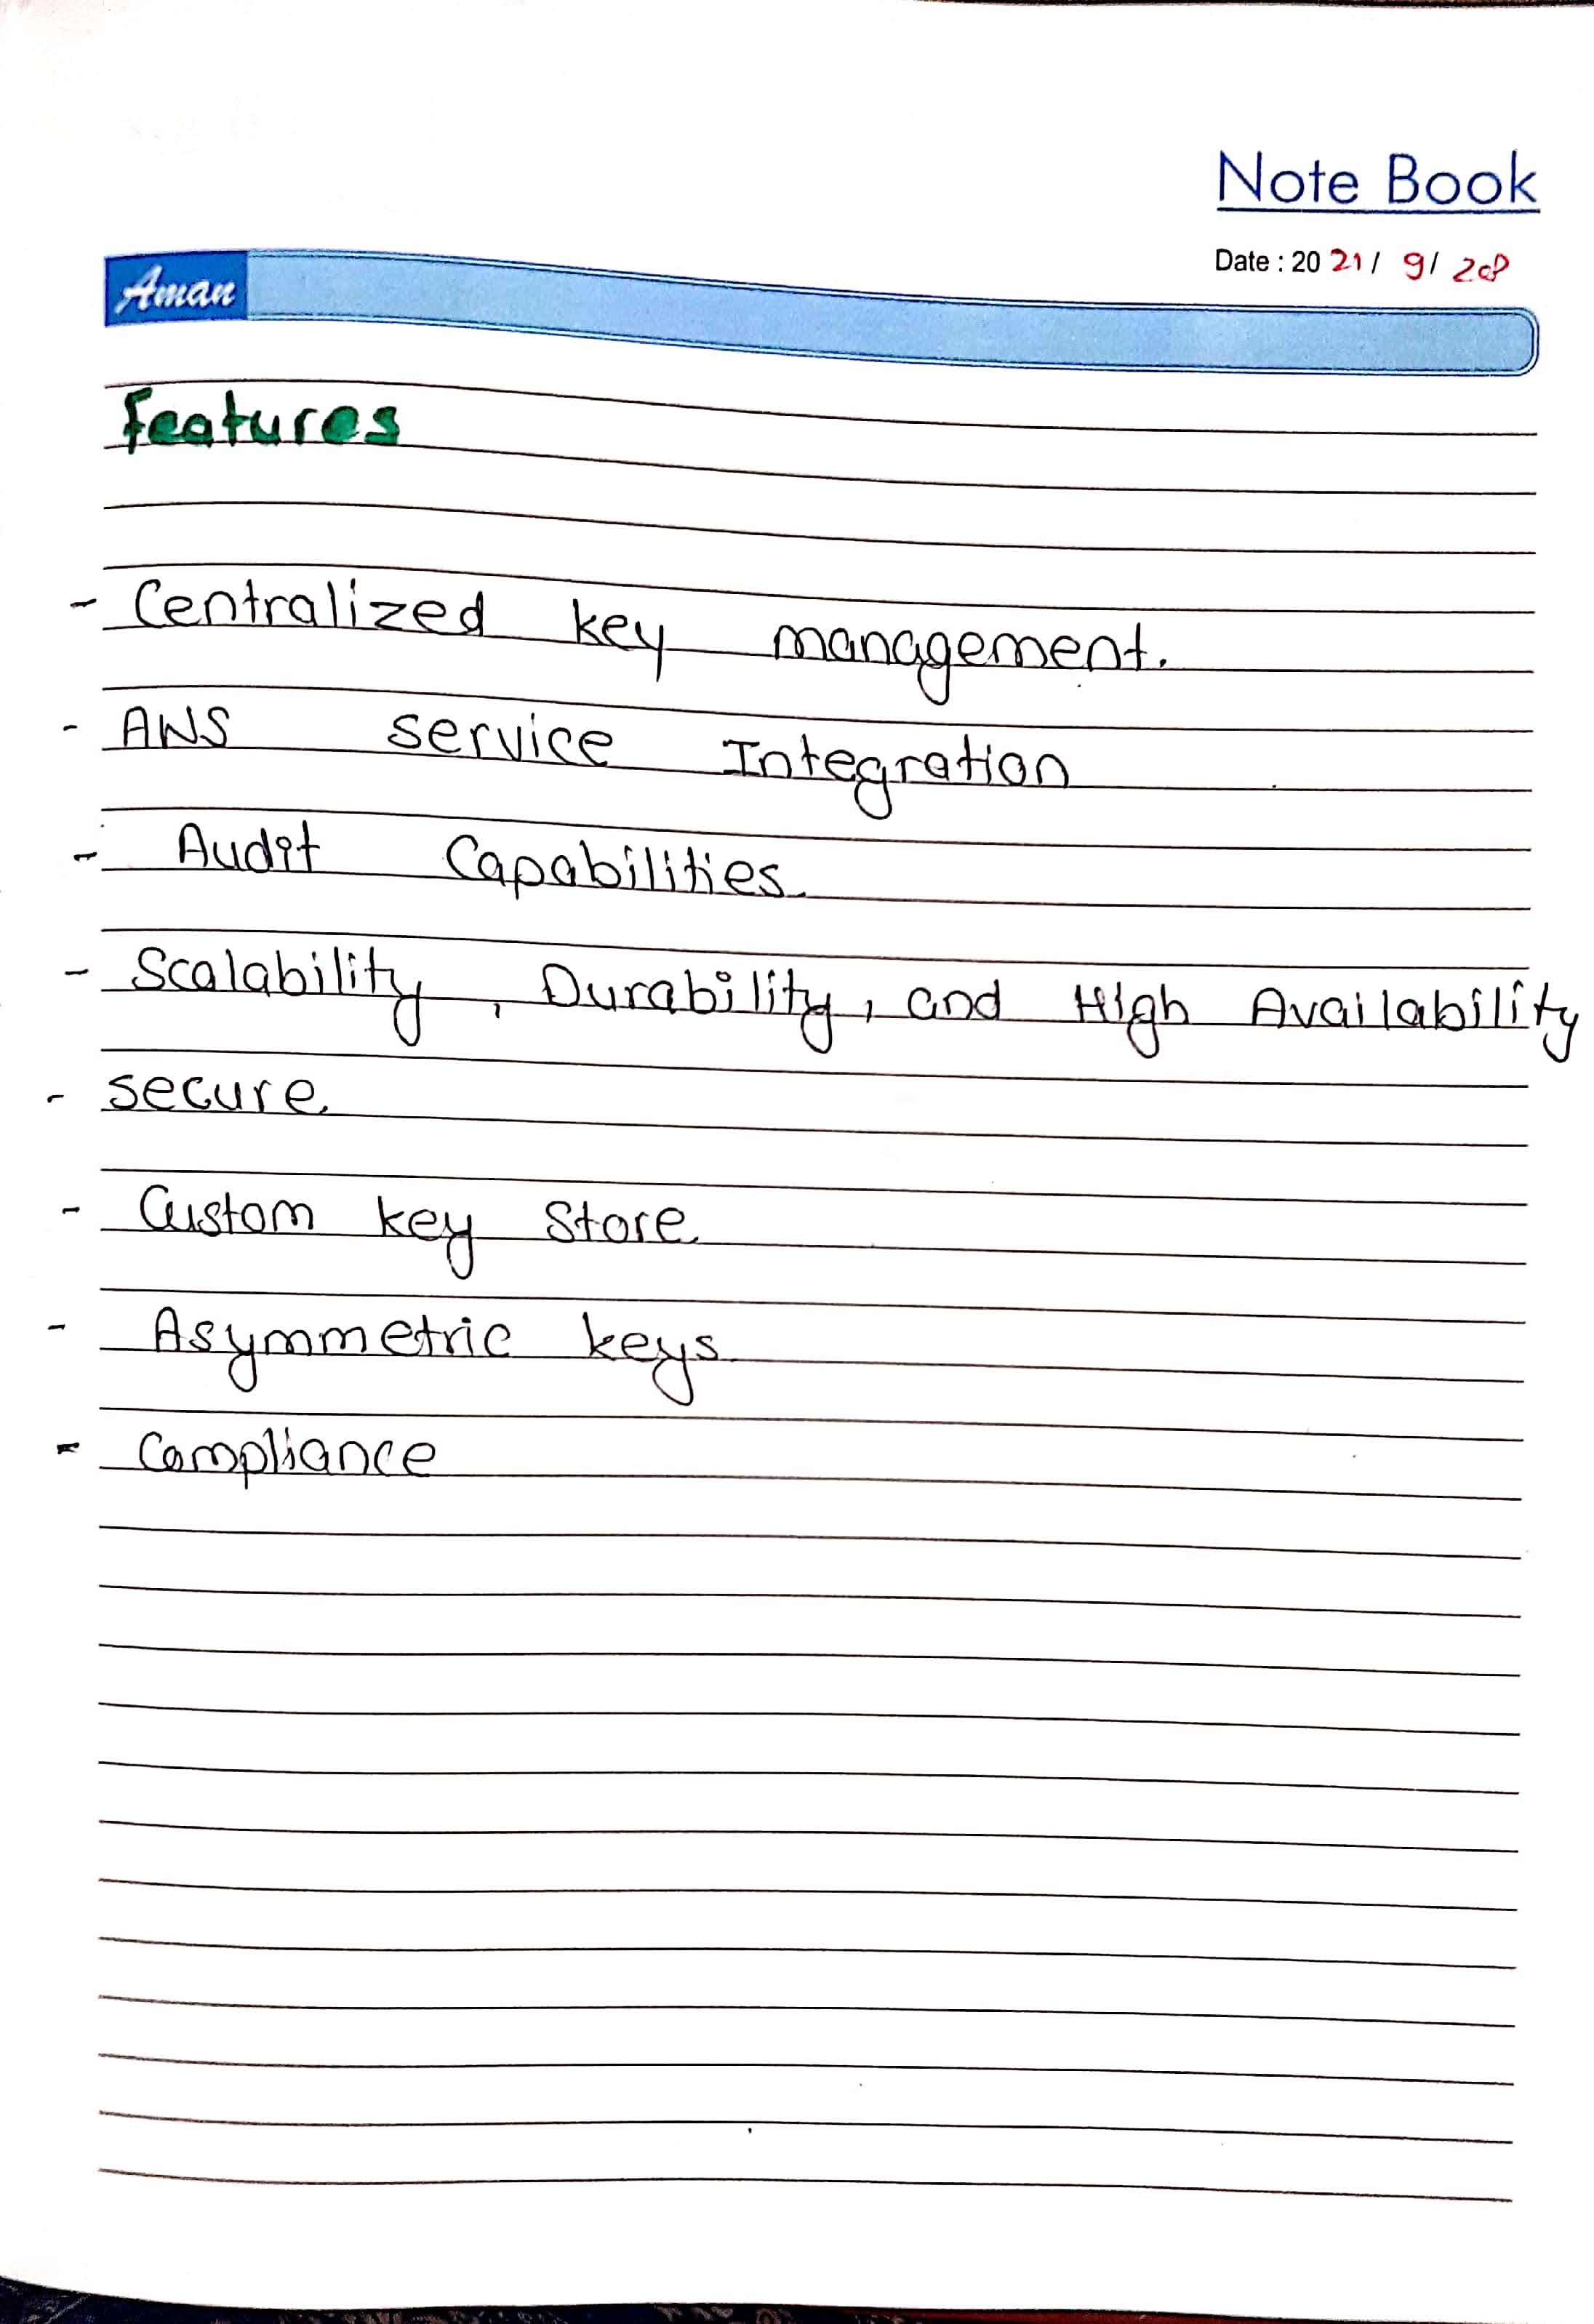 Note Book
Date : 20 21 / 9 / 28
Aman
Features
- Centralized key management.
- AWS service Integration
- Audit Capabilities
- Scalability, Durability, and High Availability
- secure
- Custom key Store
- Asymmetric keys
- Compliance